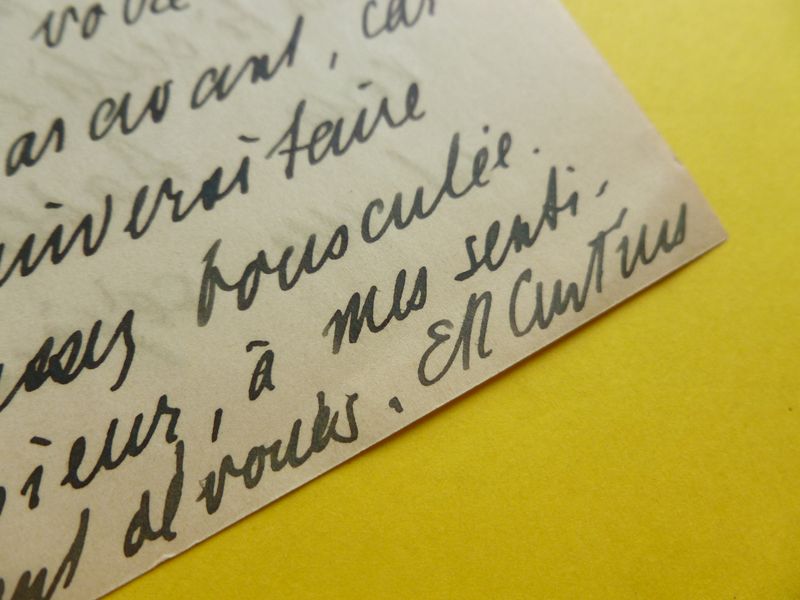 aravant, car
universitaire
assez bousculée.
sieur, à mes senti-
ent dévoués. ER Curtius